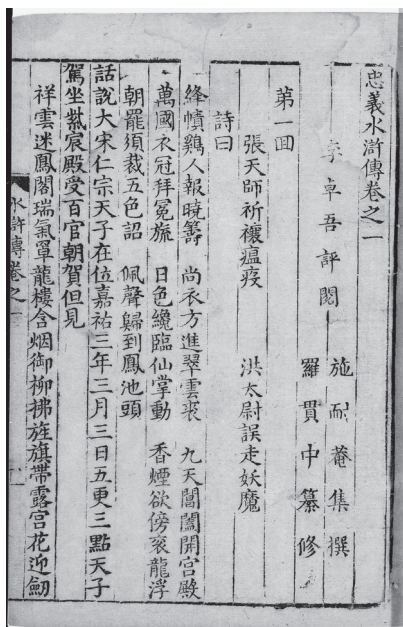 忠義水滸傳卷之一
李卓吾評閱
施耐菴集撰
羅貫中纂修
第一回
張天師祈禳瘟疫 洪太尉誤走妖魔
詩曰
絳幘鷄人報曉籌 尚衣方進翠雲裘 九天閶闔開宮殿
萬國衣冠拜冕旒 日色纔臨仙掌動 香煙欲傍袞龍浮
朝罷須裁五色詔 佩聲歸到鳳池頭
話說大宋仁宗天子在位嘉祐三年三月三日五更三點天子
駕坐紫宸殿受百官朝賀但見
祥雲迷鳳閣瑞氣罩龍樓含烟御柳拂旌旗帶露宮花迎劒
水滸傳卷之一